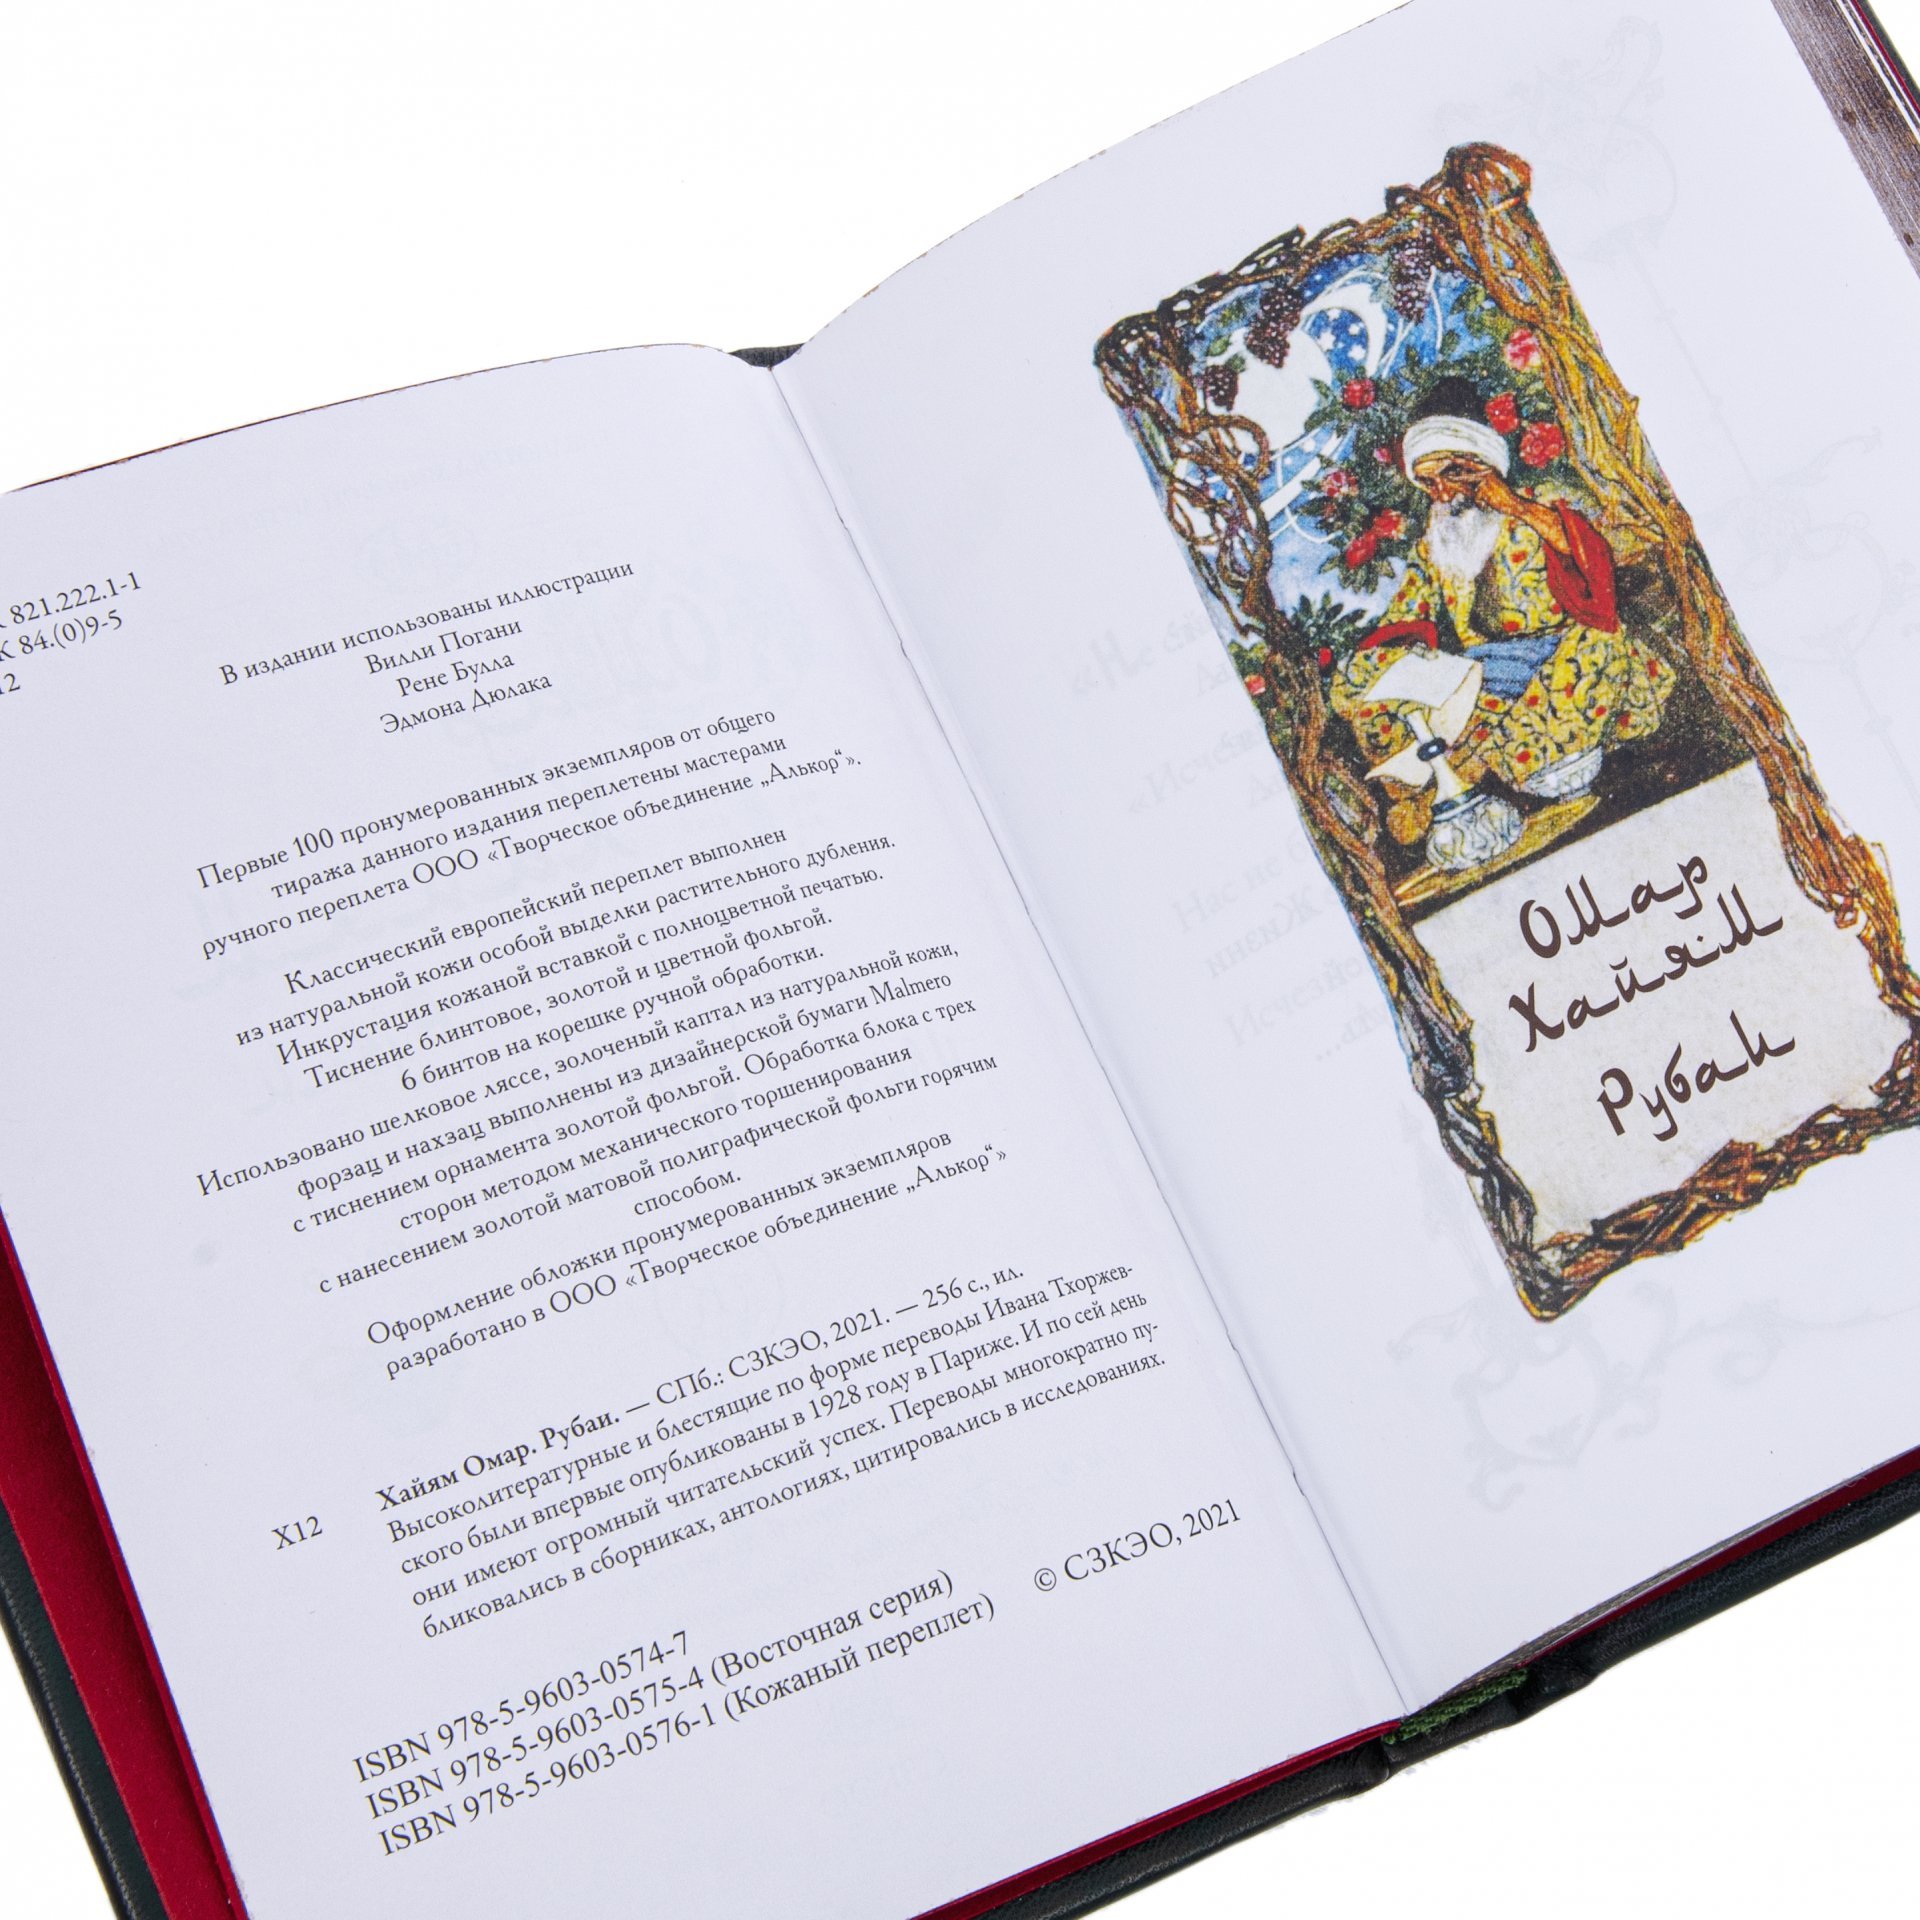 821.222.1-1
К 84.(0)9-5
В издании использованы иллюстрации
Вилли Погани
Рене Булла
Эдмона Дюлака
Первые 100 пронумерованных экземпляров от общего
тиража данного издания переплетены мастерами
ручного переплета ООО «Творческое объединение „Алькор“».
Классический европейский переплет выполнен
из натуральной кожи особой выделки растительного дубления.
Инкрустация кожаной вставкой с полноцветной печатью.
Тиснение блинтовое, золотой и цветной фольгой.
6 бинтов на корешке ручной обработки.
Использовано шелковое ляссе, золоченый каптал из натуральной кожи,
форзац и нахзац выполнены из дизайнерской бумаги Malmero
с тиснением орнамента золотой фольгой. Обработка блока с трех
сторон методом механического торшенирования
с нанесением золотой матовой полиграфической фольги горячим
способом.
Оформление обложки пронумерованных экземпляров
разработано в ООО «Творческое объединение „Алькор“»
Хайям Омар. Рубаи. — СПб.: СЗКЭО, 2021. — 256 с., ил.
Х12
Высоколитературные и блестящие по форме переводы Ивана Тхоржев-
ского были впервые опубликованы в 1928 году в Париже. И по сей день
они имеют огромный читательский успех. Переводы многократно пу-
бликовались в сборниках, антологиях, цитировались в исследованиях.
© СЗКЭО, 2021
ISBN 978-5-9603-0574-7
ISBN 978-5-9603-0575-4 (Восточная серия)
ISBN 978-5-9603-0576-1 (Кожаный переплет)
Омар
Хайям
Рубаи